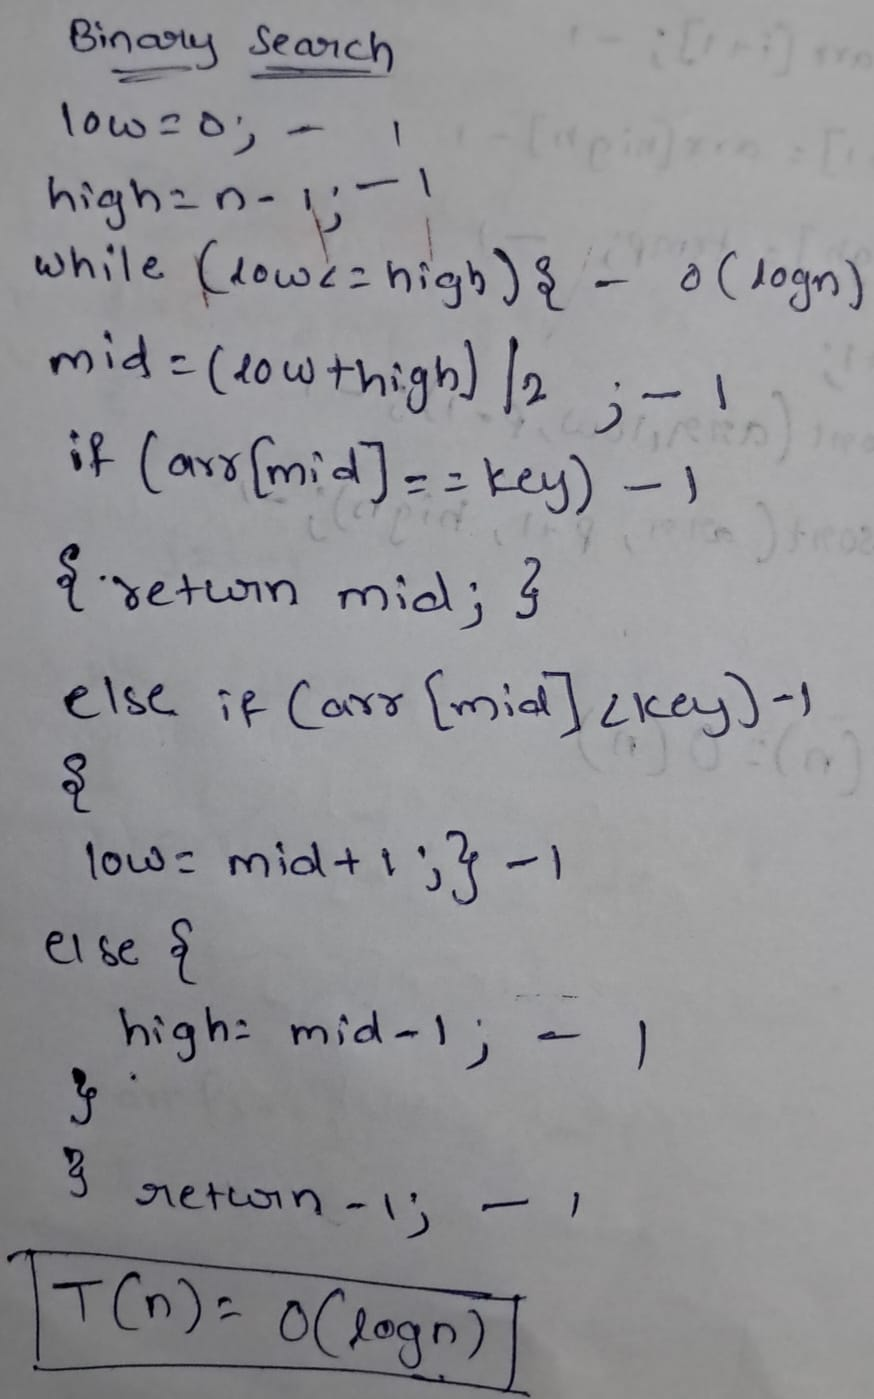 Binary Search
low=0; - 1
high=n-1; - 1
while (low<=high){ - O(logn)
mid=(low+high)/2 ; - 1
if (arr[mid]==key) - 1
{ return mid; }
else if (arr[mid]<key) - 1
{
low=mid+1;} - 1
else {
high=mid-1; - 1
}
} return -1; - 1
T(n)=O(logn)